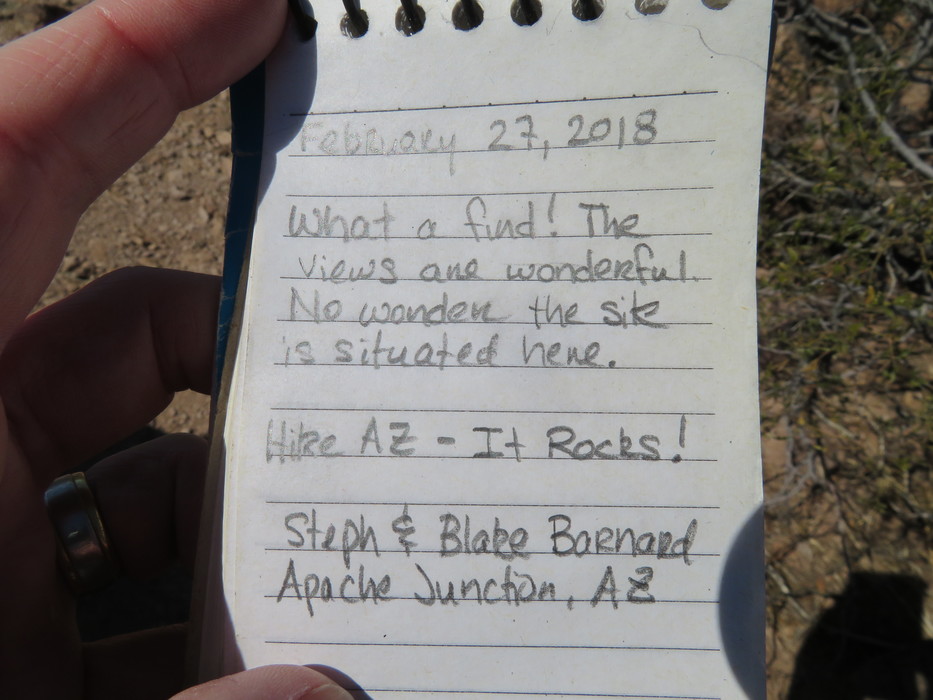 February 27, 2018
What a find! The
views are wonderful.
No wonder the site
is situated here.
Hike AZ - It Rocks!
Steph & Blake Barnard
Apache Junction, AZ